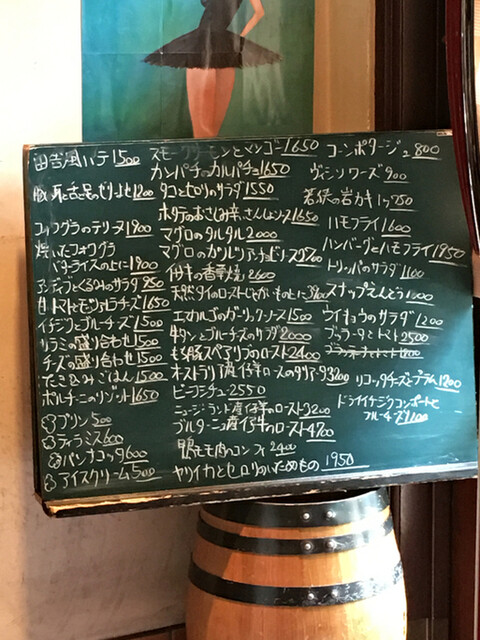 田舎風パテ 1500
豚耳と舌のゼリよせ 1200
フォワグラのテリーヌ 1900
焼いたフォワグラ
バターライスの上に 1900
アンディーブとくるみのサラダ 850
生トマトとモッツァレラチーズ 1650
イチジクとブルーチーズ 1500
サラミの盛り合わせ 1500
チーズの盛り合わせ 1500
たき込みごはん 1500
ポルチーニのリゾット 1650
プリン 500
ティラミス 600
パンナコッタ 600
アイスクリーム 500
スモークサーモンとマンゴー 1650
カンパチのカルパチョ 1650
タコとセロリのサラダ 1550
ホタテのおさしみ 1650
マグロのタルタル 2000
マグロの
イサキの香草焼 2600
天然ダイのローストじゃがいもの上に
エスカルゴのガーリックソース 1500
牛タンとブルーチーズのサラダ 2000
もち豚スペアリブのロースト 2400
オーストラリア産仔羊ロースのタリアータ 3200
ビーフシチュー 2550
ニュージーランド産仔羊のロースト 3200
ブルターニュ産仔牛のロースト 4700
鴨モモ肉のコンフィ 2400
ヤリイカとセロリのいためもの 1950
コーンポタージュ 800
ヴィシソワーズ 900
若狭の岩カキ 1ヶ 750
ハモフライ 1600
ハンバーグとハモフライ 1950
トリッパのサラダ 1100
スナップえんどう 1000
ウイキョウのサラダ 1200
ブッラータとトマト 2500
リコッタチーズとプラム 1200
ドライイチジクコンポートと
ブルーチーズ 1100